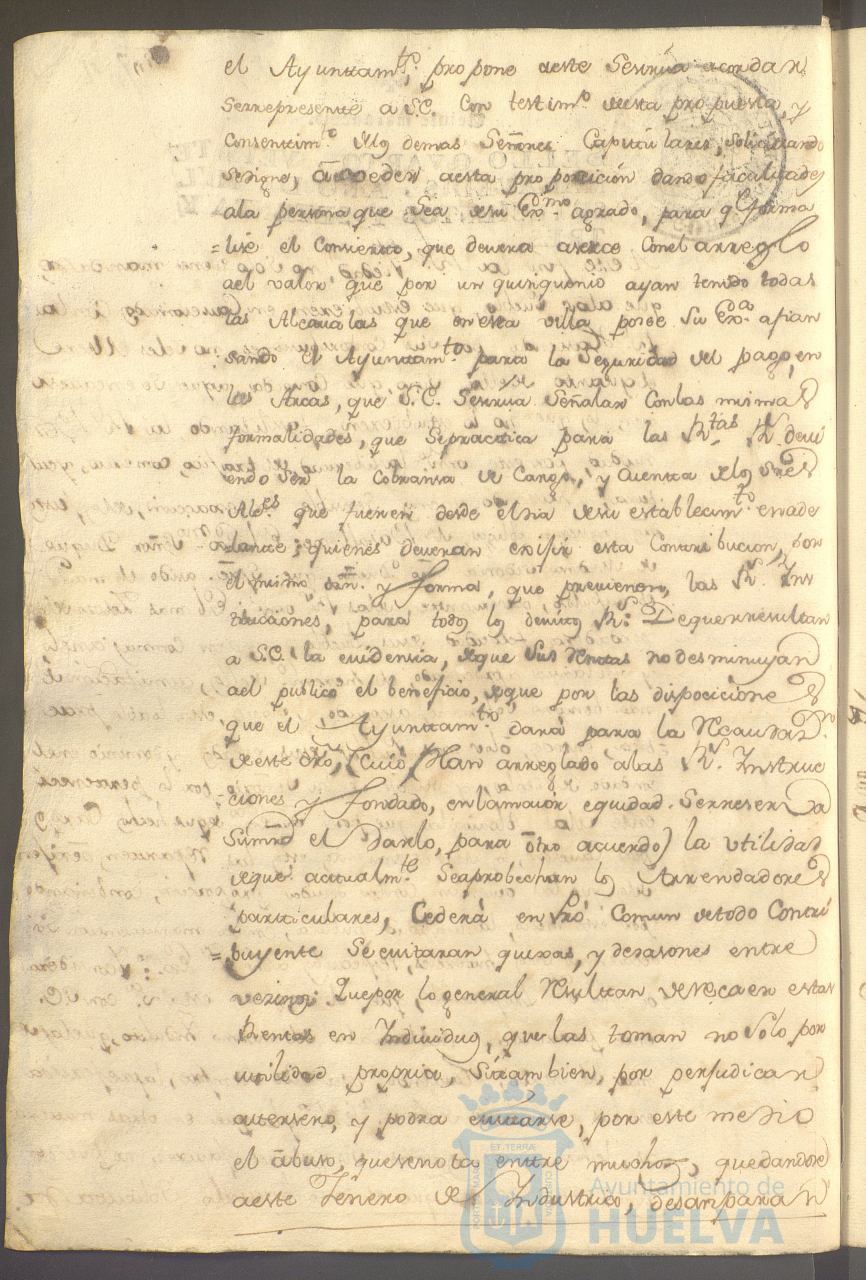 el Ayuntam.to, propone a este Se sirva acordar
se represente a S.E. Con testim.o desta propuesta y
Consentim.to de los demas Señores Capitulares, solicitando
se digne, acceder a esta proposicion dando facultades
a la persona que sea de su Ex.mo agrado, para q.e forma
=lise el Consierto, que devera aserce Con el arreglo
ael valor que por un quinquenio ayan tenido todas
las Alcavalas que en esta villa posee Su Ex.a afian
sando el Ayuntam.to para la Seguridad del pago, en
las Arcas, que S.E. Se sirva Señalar Con las mismas
formalidades, que se practica para las R.tas R.s devi
endo ser la Cobransa de Cargo, y Cuenta de los Sres
Al.es que fueren desde el dia de su establecim.to en ade
lante; quienes deveran exijir esta Contribucion, por
el mismo orn. y forma, que previenen, las R.s Ins
trucciones, para todos los devitos R.s De que resultan
a S.E. la evidensia, de que sus Rentas no desminuyan
ael publico el beneficio, de que por las disposiciones
que el Ayuntam.to dará para la Recaudaz.n
de este dro, (Cuio Plan arreglado a las R.s Instruc
-ciones y fondado, en la maior equidad. Se reserva
Sumrd el Darlo, para otro acuerdo) la utilidad
de que actualm.te Se aprobechan los Arrendadores
particulares, Cederá en Pró Comun de todo Contri
=buyente Se evitaran quexas, y desasones entre
vezinos: Que por lo general Resultan de recaer estas
Rentas en Individuos, que las toman no solo por
utilidad propria, Si tambien, por perjudicar
a tersero, y podra evitarse, por este medio
el abuso, que se nota entre muchos, quedandose
a este Jenero de Industria, desanparan
Ayuntamiento de
HUELVA